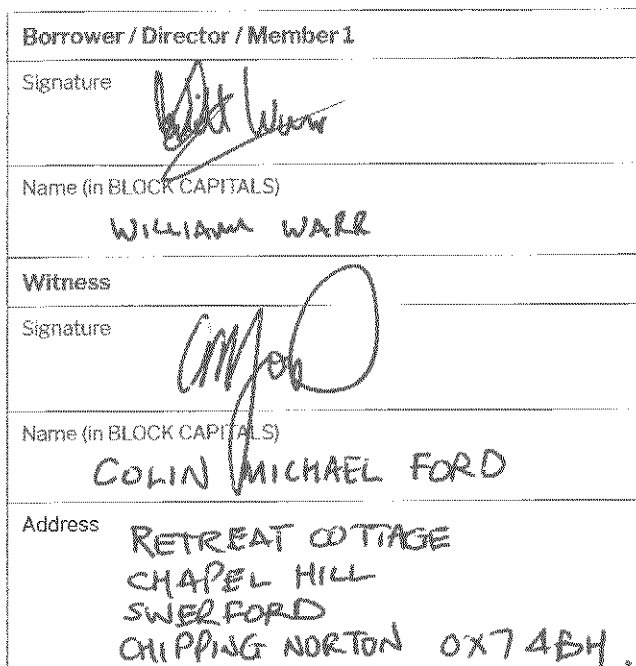 Borrower / Director / Member 1
Signature
Name (in BLOCK CAPITALS)
WILLIAM WARR
Witness
Signature
Name (in BLOCK CAPITALS)
COLIN MICHAEL FORD
Address
RETREAT COTTAGE
CHAPEL HILL
SWERFORD
CHIPPING NORTON OX7 4BH